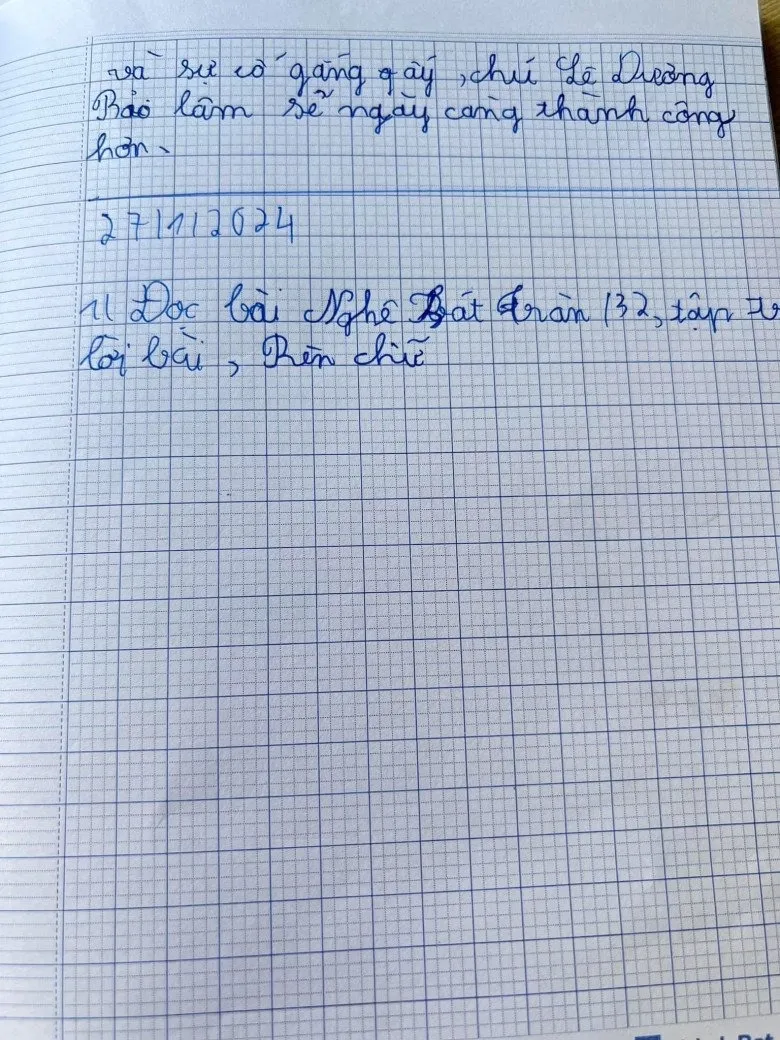 và sự cố gắng gấy, chú Lê Dương
Bảo lâm sẽ ngày càng thành công
hơn.
27/11/2024
1/ Đọc bài Nghề Bát tràn 132, tập
lời bài, Rèn chữ